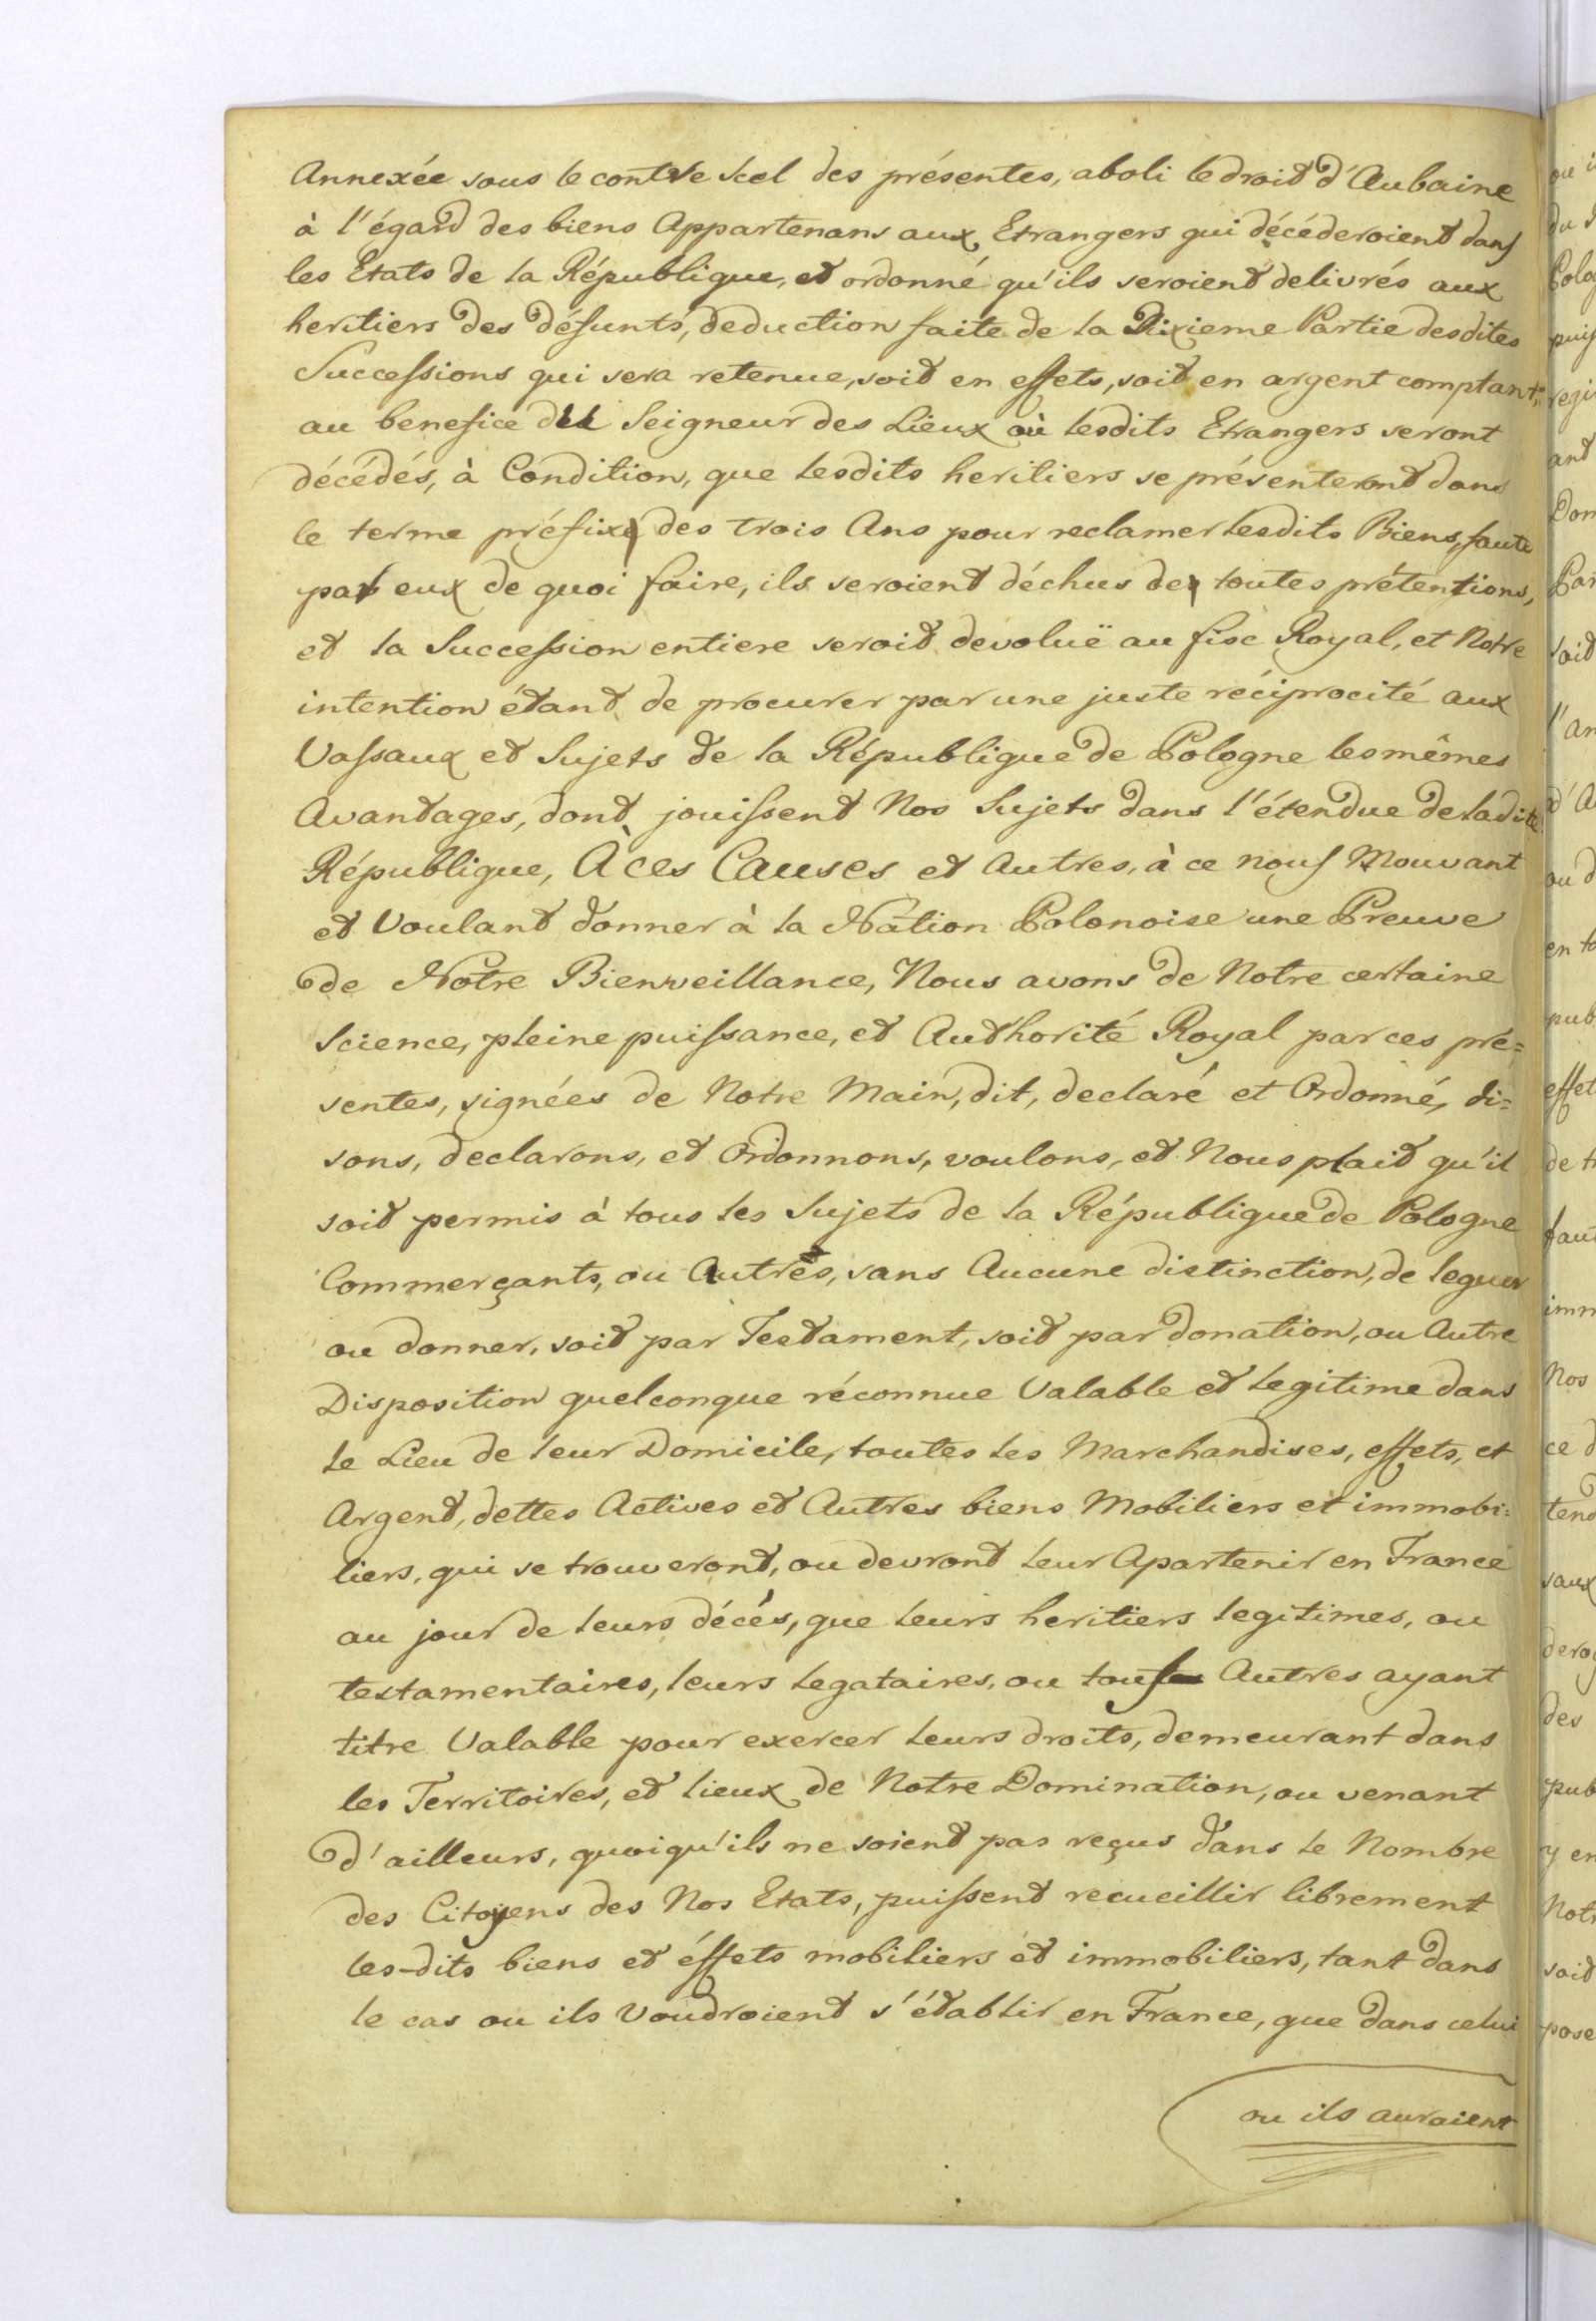 Annexée sous le contre scel des présentes, aboli le droit d'Aubaine
à l'égard des biens Appartenans aux Etrangers qui décéderoient dans
les Etats de la République, et ordonné qu'ils seroient delivrés aux
heritiers des défunts, deduction faite de la Dixieme Partie desdites
Successions qui sera retenue, soit en effets, soit en argent comptant
au benefice du Seigneur des Lieux où lesdits Etrangers seront
décédés, à Condition, que lesdits heritiers se présenteront dans
le terme préfixe des trois Ans pour reclamer lesdits Biens, faute
par eux de quoi faire, ils seroient déchus de toutes prétentions,
et la Succession entiere seroit devoluë au fisc Royal, et Notre
intention étant de procurer par une juste réciprocité aux
Vassaux et Sujets de la République de Pologne les mêmes
Avantages, dont jouissent Nos Sujets dans l'étendue de ladite
République, À ces Causes et Autres, à ce nous Mouvant
et Voulant donner à la Nation Polonoise une Preuve
de Notre Bienveillance, Nous avons de Notre certaine
Science, pleine puissance, et Authorité Royal par ces pré=
sentes, signées de Notre Main, dit, declaré et Ordonné, di=
sons, declarons, et Ordonnons, voulons, et Nous plait qu'il
soit permis à tous les Sujets de la République de Pologne
Commerçants, ou Autres, sans Aucune distinction, de leguer
ou donner, soit par Testament, soit par donation, ou Autre
Disposition quelconque réconnue Valable et legitime dans
le Lieu de leur Domicile, toutes les Marchandises, effets, et
Argent, dettes Actives et Autres biens Mobiliers et immobi=
liers, qui se trouveront, ou devront leur Apartenir en France
au jour de leurs décés, que leurs heritiers legitimes, ou
testamentaires, leurs legataires, ou tous Autres ayant
titre Valable pour exercer leurs droits, demeurant dans
les Territoires, et lieux de Notre Domination, ou venant
d'ailleurs, quoiqu'ils ne soient pas reçus dans le Nombre
des Citoyens des Nos Etats, puissent recueillir librement
les-dits biens et éffets mobiliers et immobiliers, tant dans
le cas ou ils Voudroient s'établir en France, que dans celui
ou ils auraient